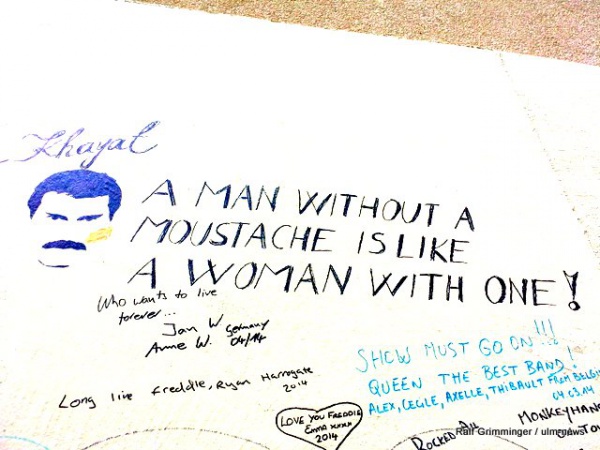 Khayat
A MAN WITHOUT A
MOUSTACHE IS LIKE
A WOMAN WITH ONE!
Who wants to live
forever...
Jan W. Germany
Anne W. 04/14
Long live Freddie, Ryan Harrogate
2014
SHOW MUST GO ON!!!
QUEEN THE BEST BAND!
ALEX, CEGLE, AXELLE, THIBAULT FROM BELGI
04.03.14
LOVE YOU FREDDIE
EMMA
2014
ROCKED
MONKEYHAN
Ralf Grimminger / ulm-news